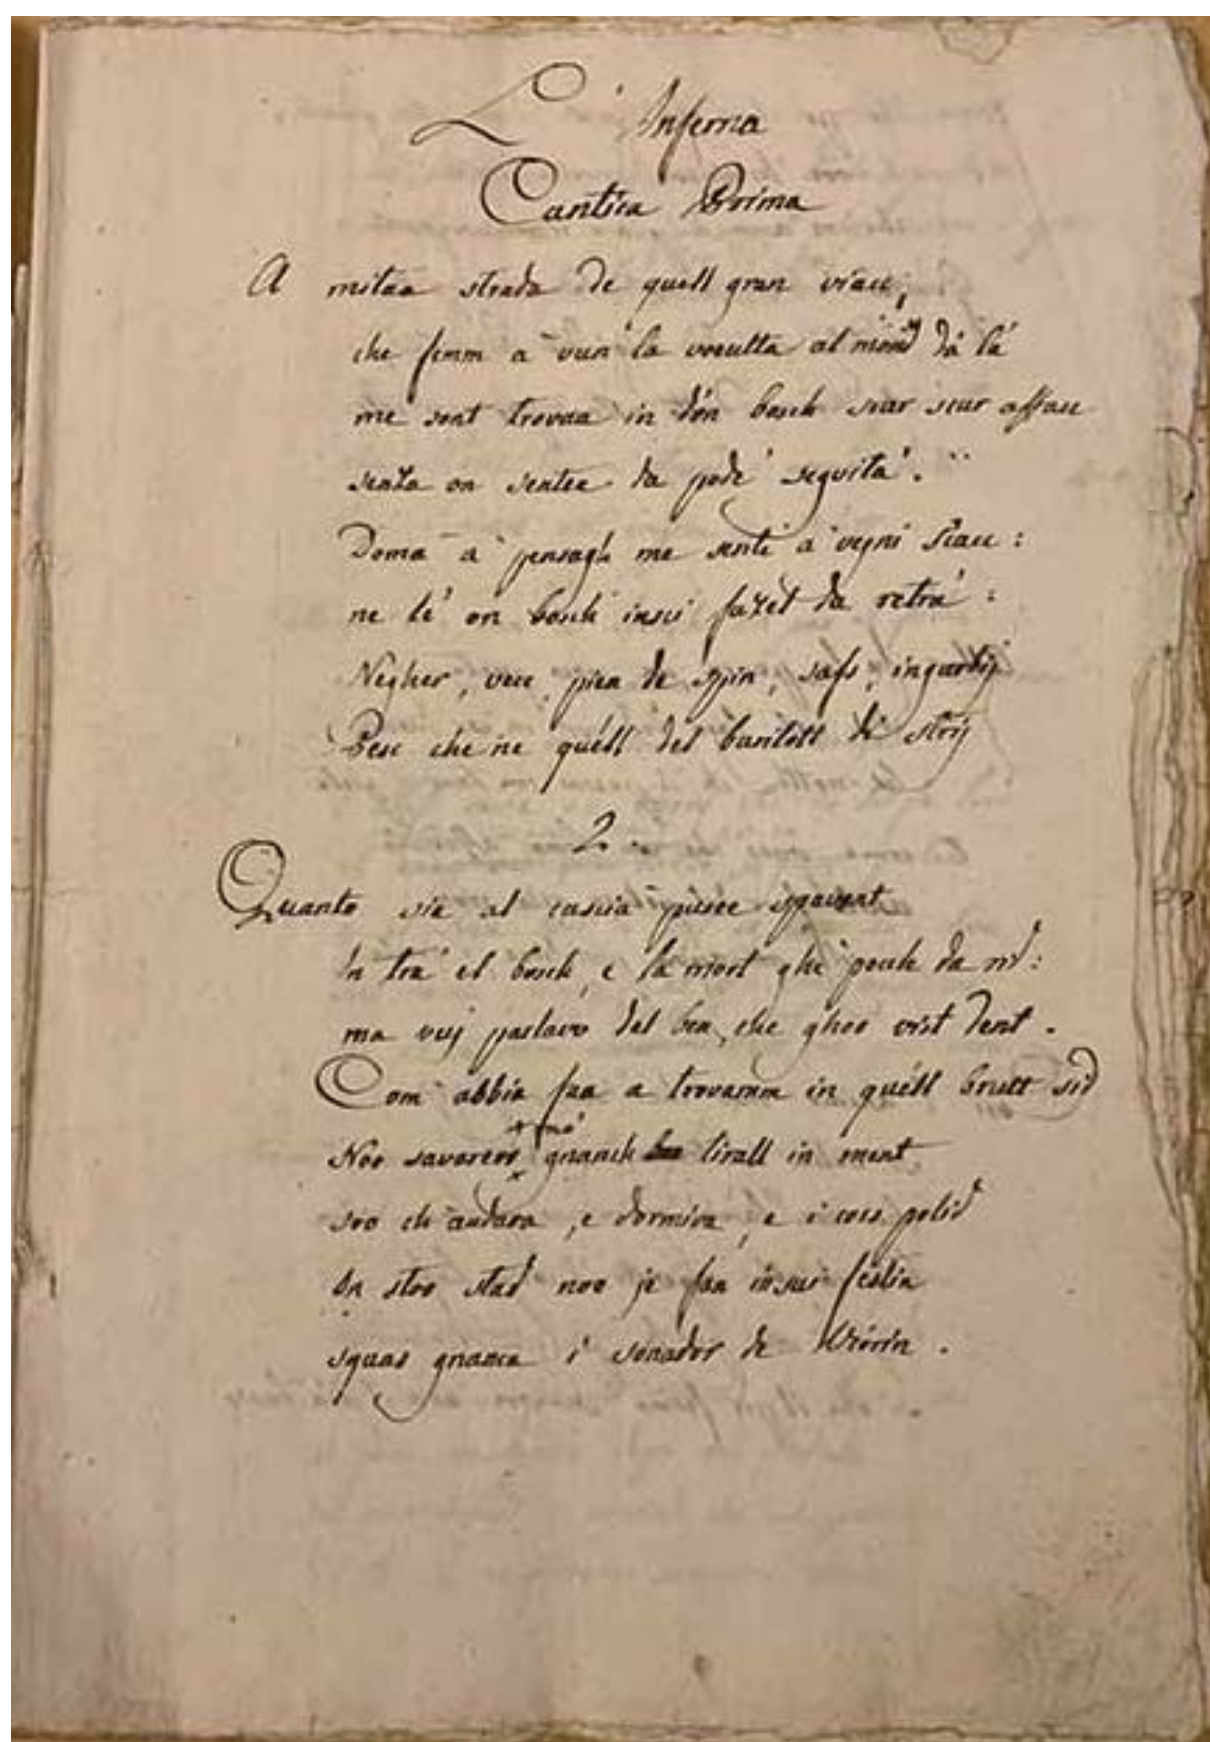 L'Inferna
Cantica Prima
A mitaa strada de quell gran viacc,
che femm a vun la voeulta al mond da là
me sont trovaa in d'on bosch scur scur affacc
senza on sentee da podè seguità.
Domà a pensagh me senti a vegni sciacc:
ne l'è on bosch inscì fazel da retrà:
Negher, vecc, pien de spin, sass, ingarbij
Pesc che ne quell del barilott di strij
2.
Quanto sia al cascia puree spavent
In trà el bosch, e la mort ghè poch da rid:
ma vuj parlavv del ben, che ghoo vist dent.
Com abbia faa a trovamm in quell brutt sid
Noo savarevv gnanch tirall in ment
soo ch'andava, e dormiva, e i coss polid
In stoo stad noo je faa inscì festin
squas gnanca i sonador de Viorin.